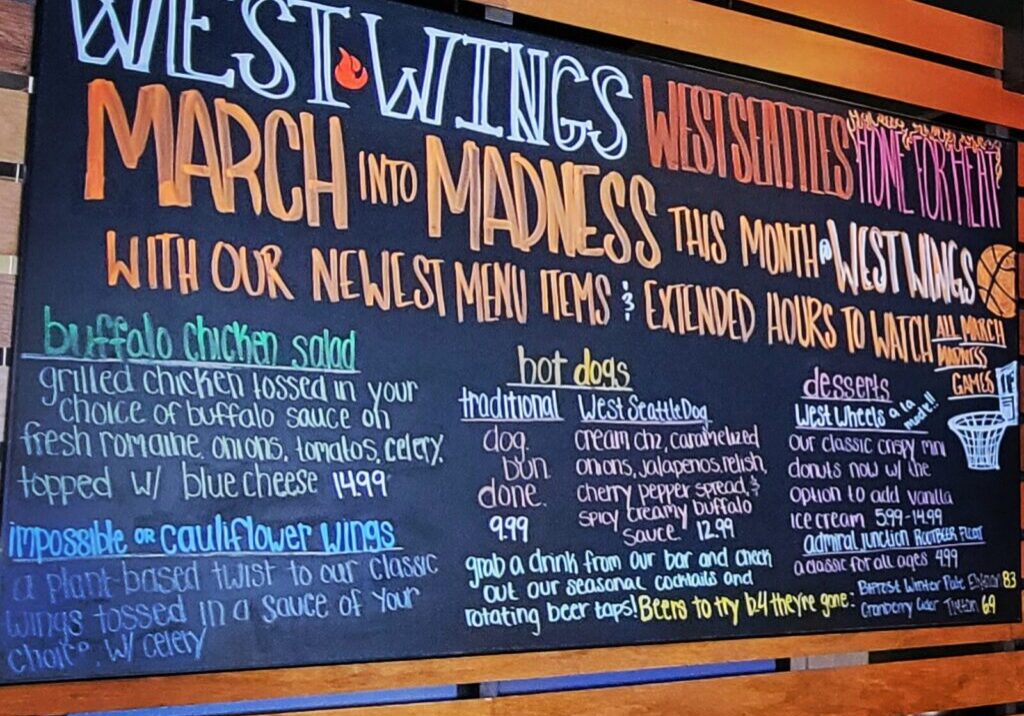 WEST WINGS WEST SEATTLES HOME FOR HEAT
MARCH INTO MADNESS THIS MONTH @ WEST WINGS
WITH OUR NEWEST MENU ITEMS & EXTENDED HOURS TO WATCH ALL MARCH
MADNESS
GAMES
buffalo chicken salad
grilled chicken tossed in your
choice of buffalo sauce on
fresh romaine, onions, tomatos, celery,
topped w/ blue cheese 14.99
impossible OR cauliflower wings
a plant-based twist to our classic
wings tossed in a sauce of your
choice. w/ celery
hot dogs
traditional
dog.
bun.
done.
9.99
West Seattle Dog
cream chz, caramelized
onions, jalapenos, relish,
cherry pepper spread, &
spicy creamy buffalo
sauce. 12.99
grab a drink from our bar and check
out our seasonal cocktails and
rotating beer taps! Beers to try b4 they're gone:
desserts
West Wheels a la mode!!
our classic crispy mini
donuts now w/ the
option to add vanilla
ice cream 5.99-14.99
admiral junction ROOTBEER FLOAT
a classic for all ages 4.99
Bifrost Winter Pale Elysian 83
Cranberry Cider Tieton 69